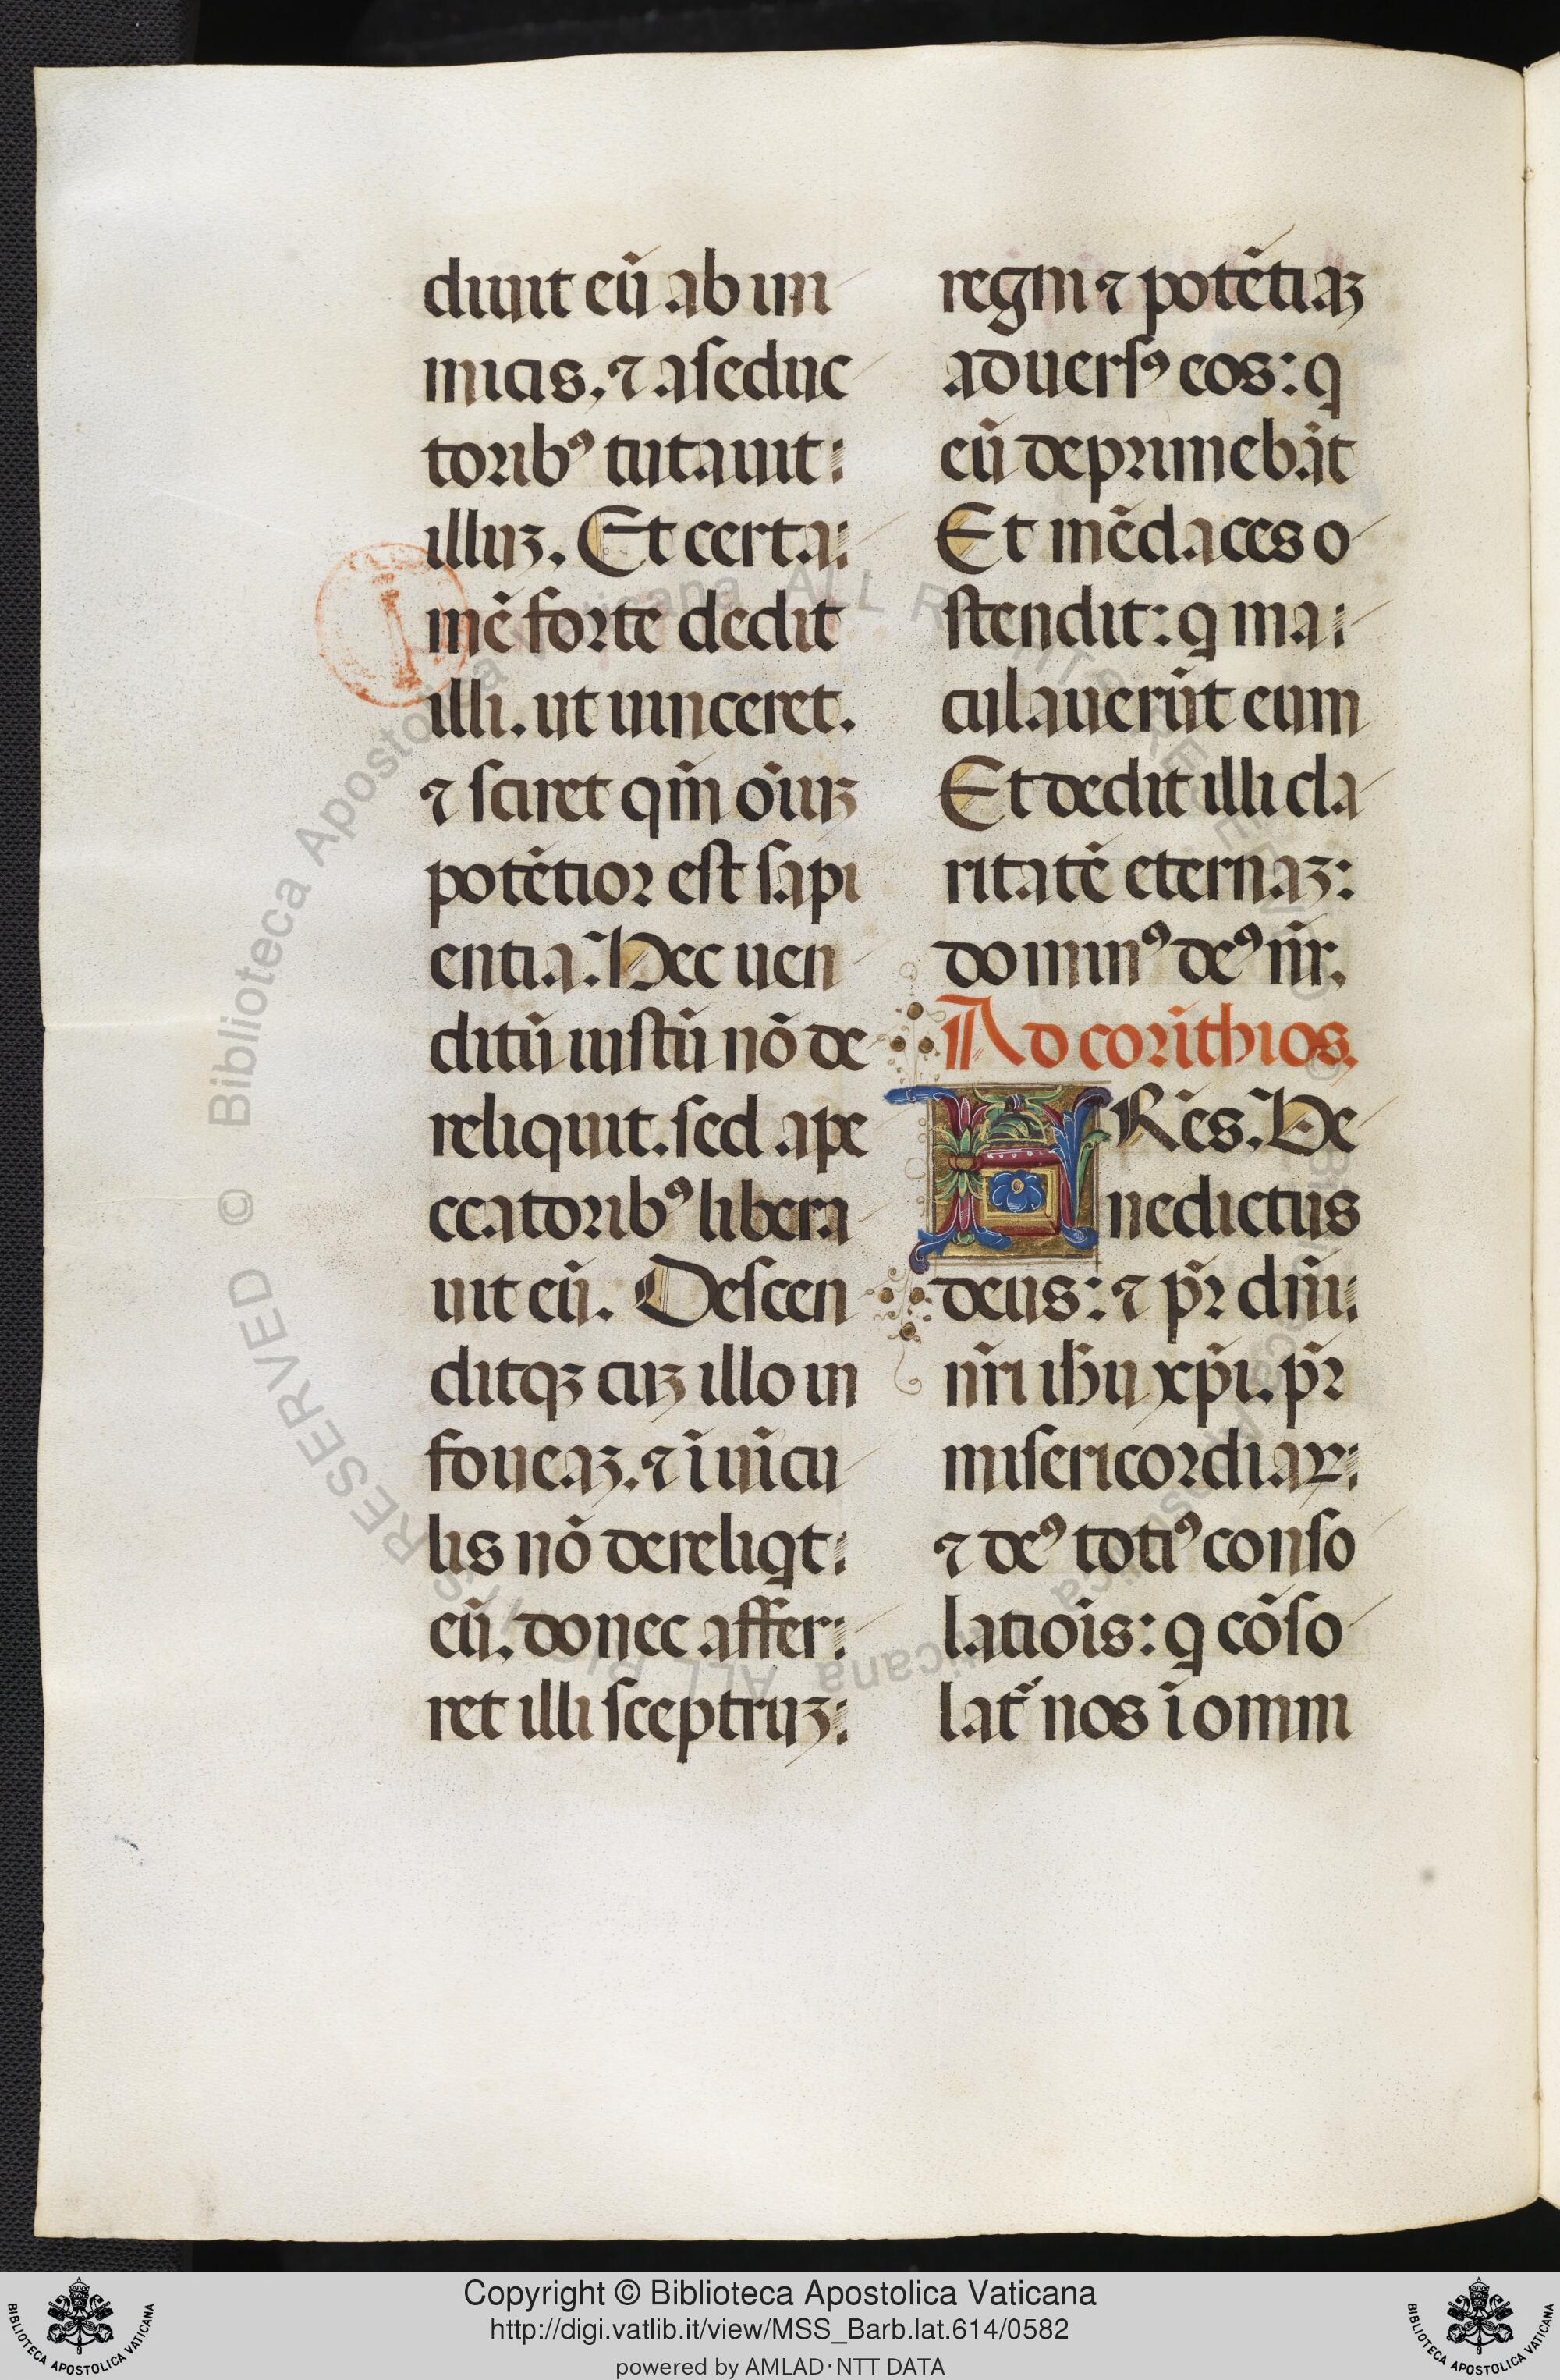 diuit eū ab ini
micis. ⁊ a seduc
toribꝰ tutauit:
illuꝫ. Et certa:
mē forte dedit
illi. ut uinceret.
⁊ sciret qm̄ oīuꝫ
potētior est sapi
entia. Hec uen
ditū iustū nō de
reliquit. sed a pe
ccatoribꝰ libera
uit eū. Descen
ditqꝫ cuꝫ illo in
foueaꝫ. ⁊ ī uīcu
lis nō dereliqt:
eū. donec affer:
ret illi sceptruꝫ:
regni ⁊ potētiaꝫ
aduersꝰ eos: q
eū deprimebāt
Et mēdaces o
stendit: q ma:
culauerūt eum
Et dedit illi cla
ritatē eternaꝫ:
dominꝰ deꝰ nr̄.
Ad corīthios.
FRēs. Be
nedictus
deus: ⁊ pr̄ dn̄i:
nr̄i ihu xp̄i. pr̄
misericordiaꝝ:
⁊ deꝰ totiꝰ conso
latiois: q cōso
lat᷑ nos ī omni
Copyright © Biblioteca Apostolica Vaticana
http://digi.vatlib.it/view/MSS_Barb.lat.614/0582
powered by AMLAD·NTT DATA
BIBLIOTECA APOSTOLICA VATICANA
BIBLIOTECA APOSTOLICA VATICANA